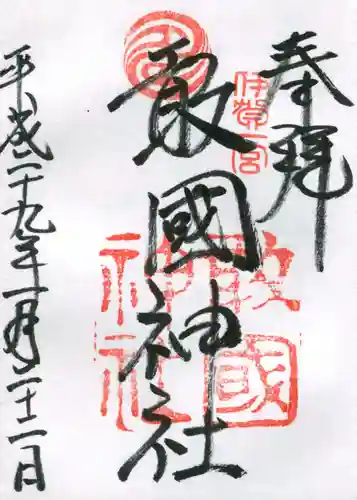 奉拝
伊賀一宮
敢國神社
敢國神社
平成二十九年一月二十二日